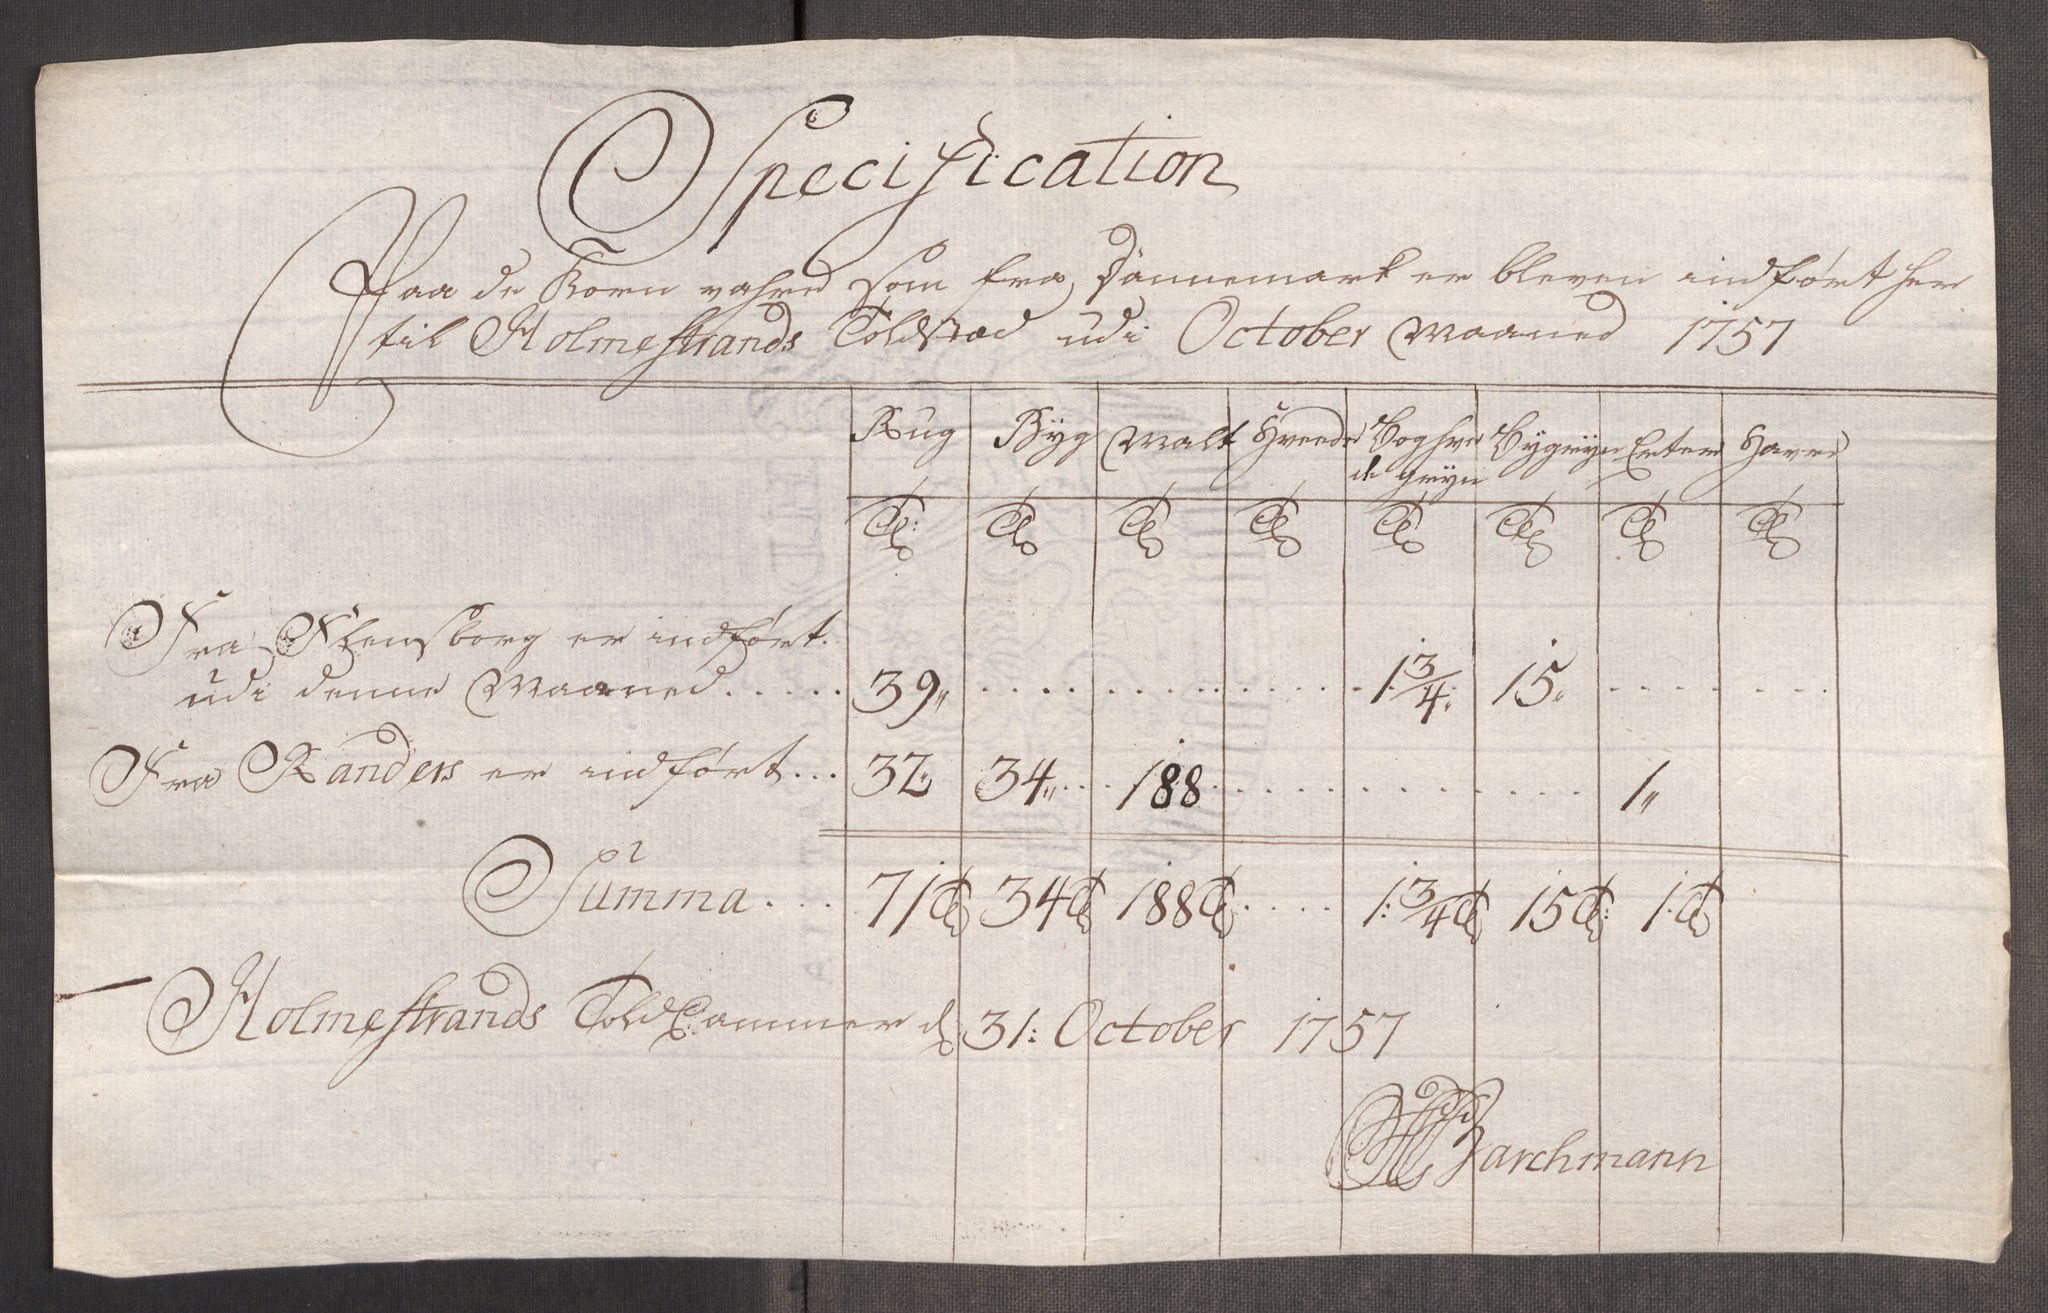 Specification
Paa de Korn vahre som fra Dannemark er bleven indført her
til Holmestrands Toldstæd udi October Maaned 1757
Rug Byg Malt Hveede Boghve Bygryn Erter Havre
de gryn
Tr: Tr Tr Tr Tr Tr Tr Tr
Fra Flensborg er indført
udi denne Maaned ..... 39 " . . . . . . . . 1 3/4 : 15 " . . . . .
Fra Randers er indført ... 32 34 " . . . 188 . . . . . . . . 1 "
Summa .... 71 Tr 34 Tr 188 Tr .... 1: 3/4 Tr 15 Tr: 1. Tr
Holmestrands Told Cammer d 31: October 1757
Barchmann